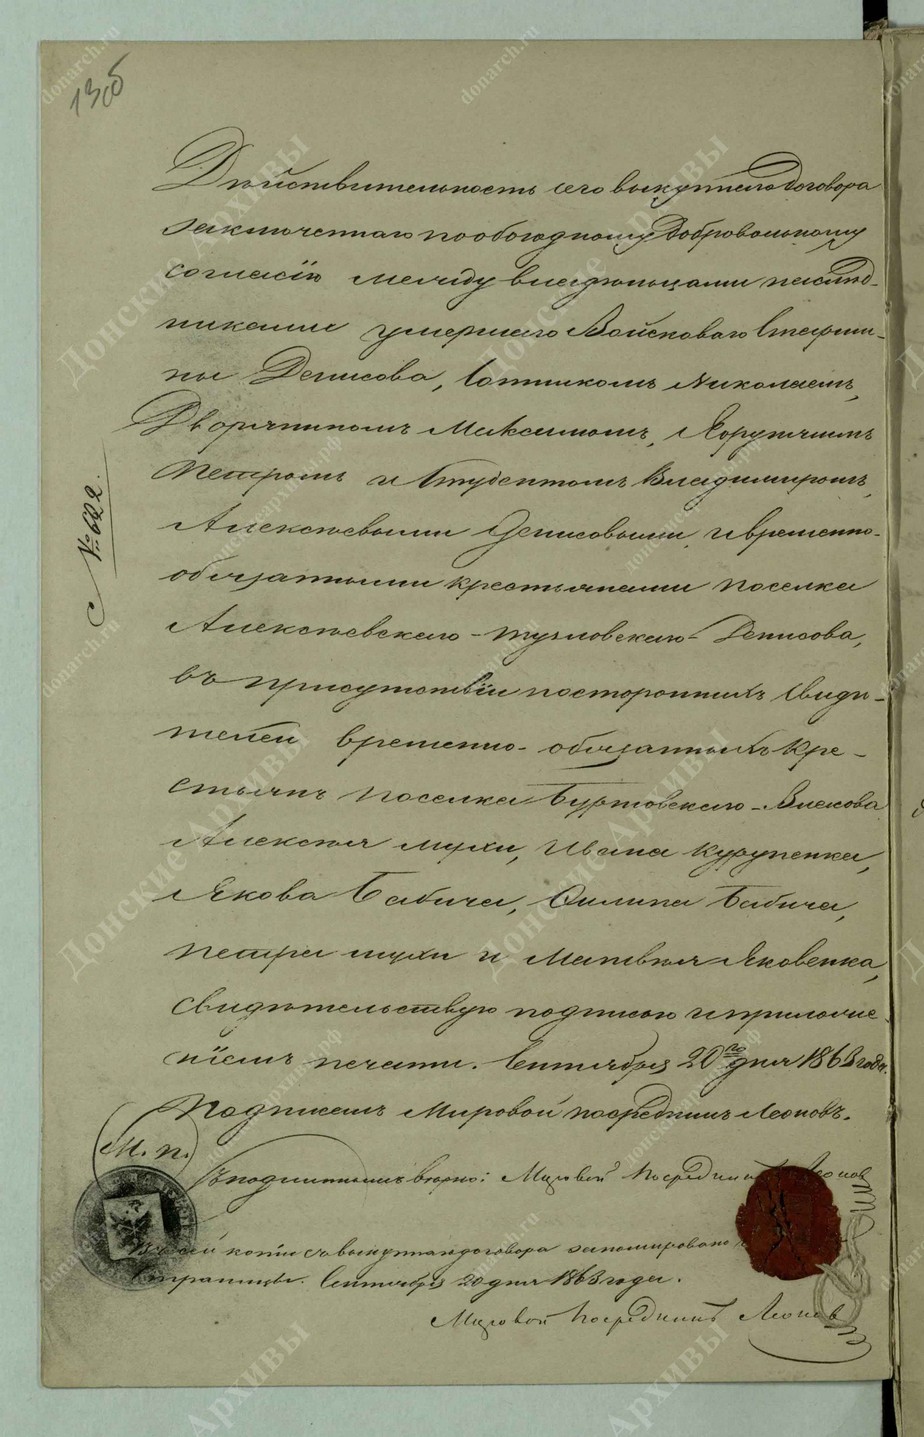 130б
Дѣйствительность сего выкупнаго договора
заключеннаго по обоюдному добровольному
согласію между владѣльцами наслѣд-
никами умершаго Войсковаго Старши-
ны Денисова, Сотникомъ Николаемъ,
Дворяниномъ Максимомъ, Хорунжимъ
Петромъ и Студентомъ Владимиромъ,
Алексѣевыми Денисовыми, и временно-
обязанными крестьянами поселка
Алексѣевскаго-Тузловскаго-Денисова,
въ присутствіи постороннихъ свидѣ-
телей временно-обязанныхъ кре-
стьянъ поселка Буртовскаго-Власова
Алексѣя Мухи, Ивана Курупенка,
Якова Бабича, Филипа Бабича,
Петра Мухи и Матвѣя Яковенка,
свидѣтельствую подписью и приложе-
ніемъ печати. Сентября 20го дня 1863 года.
Подписалъ Мировой посредникъ Леоновъ.
М. п.
Съ подлиннымъ вѣрно: Мировой Посредникъ Леонов
В сей копіи съ выкупнаго договора запомировано
страницы. Сентября 20 дня 1863 года.
Мировой Посредникъ Леонов
№ 622.